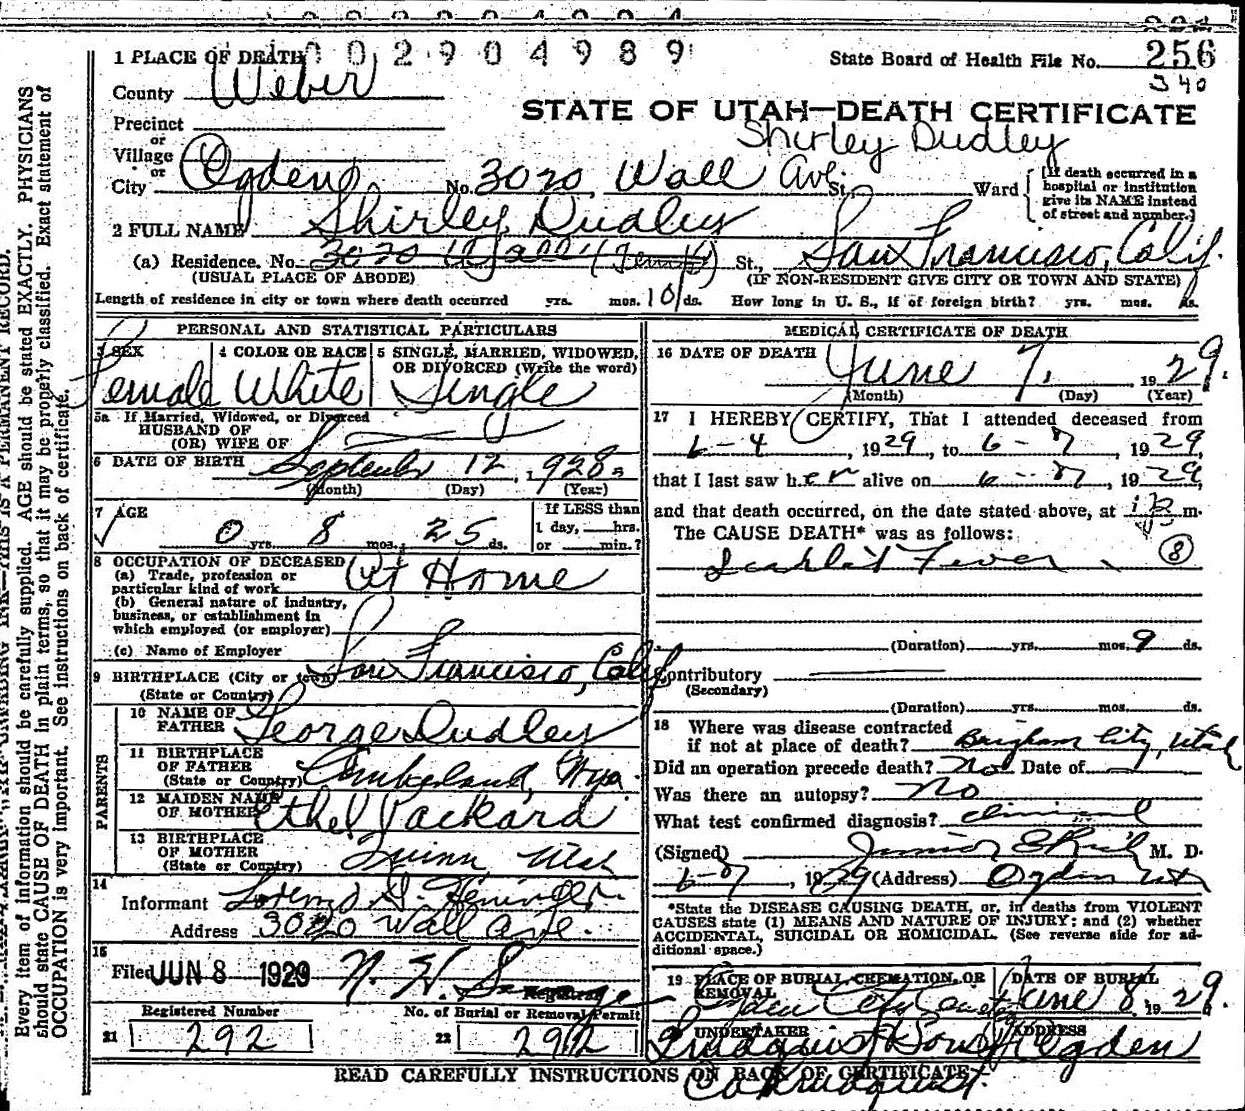 002904989
1 PLACE OF DEATH
State Board of Health File No. 256
340
County Weber
STATE OF UTAH—DEATH CERTIFICATE
Precinct
or
Shirley Dudley
Village
or
City Ogden No. 3020 Wall Ave. St. Ward
[If death occurred in a
hospital or institution
give its NAME instead
of street and number.]
2 FULL NAME Shirley Dudley
(a) Residence. No. 3020 Wall (Temp) St., San Francisco, Calif.
(USUAL PLACE OF ABODE) (IF NON-RESIDENT GIVE CITY OR TOWN AND STATE)
Length of residence in city or town where death occurred yrs. mos. 10 ds. How long in U. S., if of foreign birth? yrs. mos. ds.
PERSONAL AND STATISTICAL PARTICULARS
3 SEX 4 COLOR OR RACE 5 SINGLE, MARRIED, WIDOWED,
OR DIVORCED (Write the word)
Female White Single
5a If Married, Widowed, or Divorced
HUSBAND OF
(OR) WIFE OF
6 DATE OF BIRTH September 12, 1928
(Month) (Day) (Year)
7 AGE If LESS than
1 day, hrs.
0 yrs. 8 mos. 25 ds. or min.?
8 OCCUPATION OF DECEASED
(a) Trade, profession or
particular kind of work At Home
(b) General nature of industry,
business, or establishment in
which employed (or employer)
(c) Name of Employer
9 BIRTHPLACE (City or town) San Francisco, Calif
(State or Country)
PARENTS
10 NAME OF
FATHER George Dudley
11 BIRTHPLACE
OF FATHER
(State or Country)
12 MAIDEN NAME
OF MOTHER Ethel Packard
13 BIRTHPLACE
OF MOTHER
(State or Country) Utah
14
Informant
Address 3020 Wall Ave.
15
Filed JUN 8 1929 N. H. Savage
Registrar
Registered Number No. of Burial or Removal Permit
21 292 22 292
MEDICAL CERTIFICATE OF DEATH
16 DATE OF DEATH June 7, 1929.
(Month) (Day) (Year)
17 I HEREBY CERTIFY, That I attended deceased from
6-4, 1929, to 6-7, 1929,
that I last saw her alive on 6-7, 1929,
and that death occurred, on the date stated above, at m.
The CAUSE DEATH* was as follows:
Scarlet Fever 8
(Duration) yrs. mos. 9 ds.
Contributory
(Secondary)
(Duration) yrs. mos. ds.
18 Where was disease contracted
if not at place of death? Brigham City, Utah
Did an operation precede death? No Date of
Was there an autopsy? No
What test confirmed diagnosis? Clinical
(Signed) Junior E Rich M. D.
6-7, 1929 (Address) Ogden Utah
*State the DISEASE CAUSING DEATH, or, in deaths from VIOLENT
CAUSES state (1) MEANS AND NATURE OF INJURY; and (2) whether
ACCIDENTAL, SUICIDAL OR HOMICIDAL. (See reverse side for ad-
ditional space.)
19 PLACE OF BURIAL CREMATION, OR DATE OF BURIAL
REMOVAL
Ogden City Cemetery June 8, 1929.
20 UNDERTAKER ADDRESS
Lindquist & Sons Ogden
READ CAREFULLY INSTRUCTIONS ON BACK OF CERTIFICATE
Every item of information should be carefully supplied. AGE should be stated EXACTLY. PHYSICIANS
should state CAUSE OF DEATH in plain terms, so that it may be properly classified. Exact statement of
OCCUPATION is very important. See instructions on back of certificate.